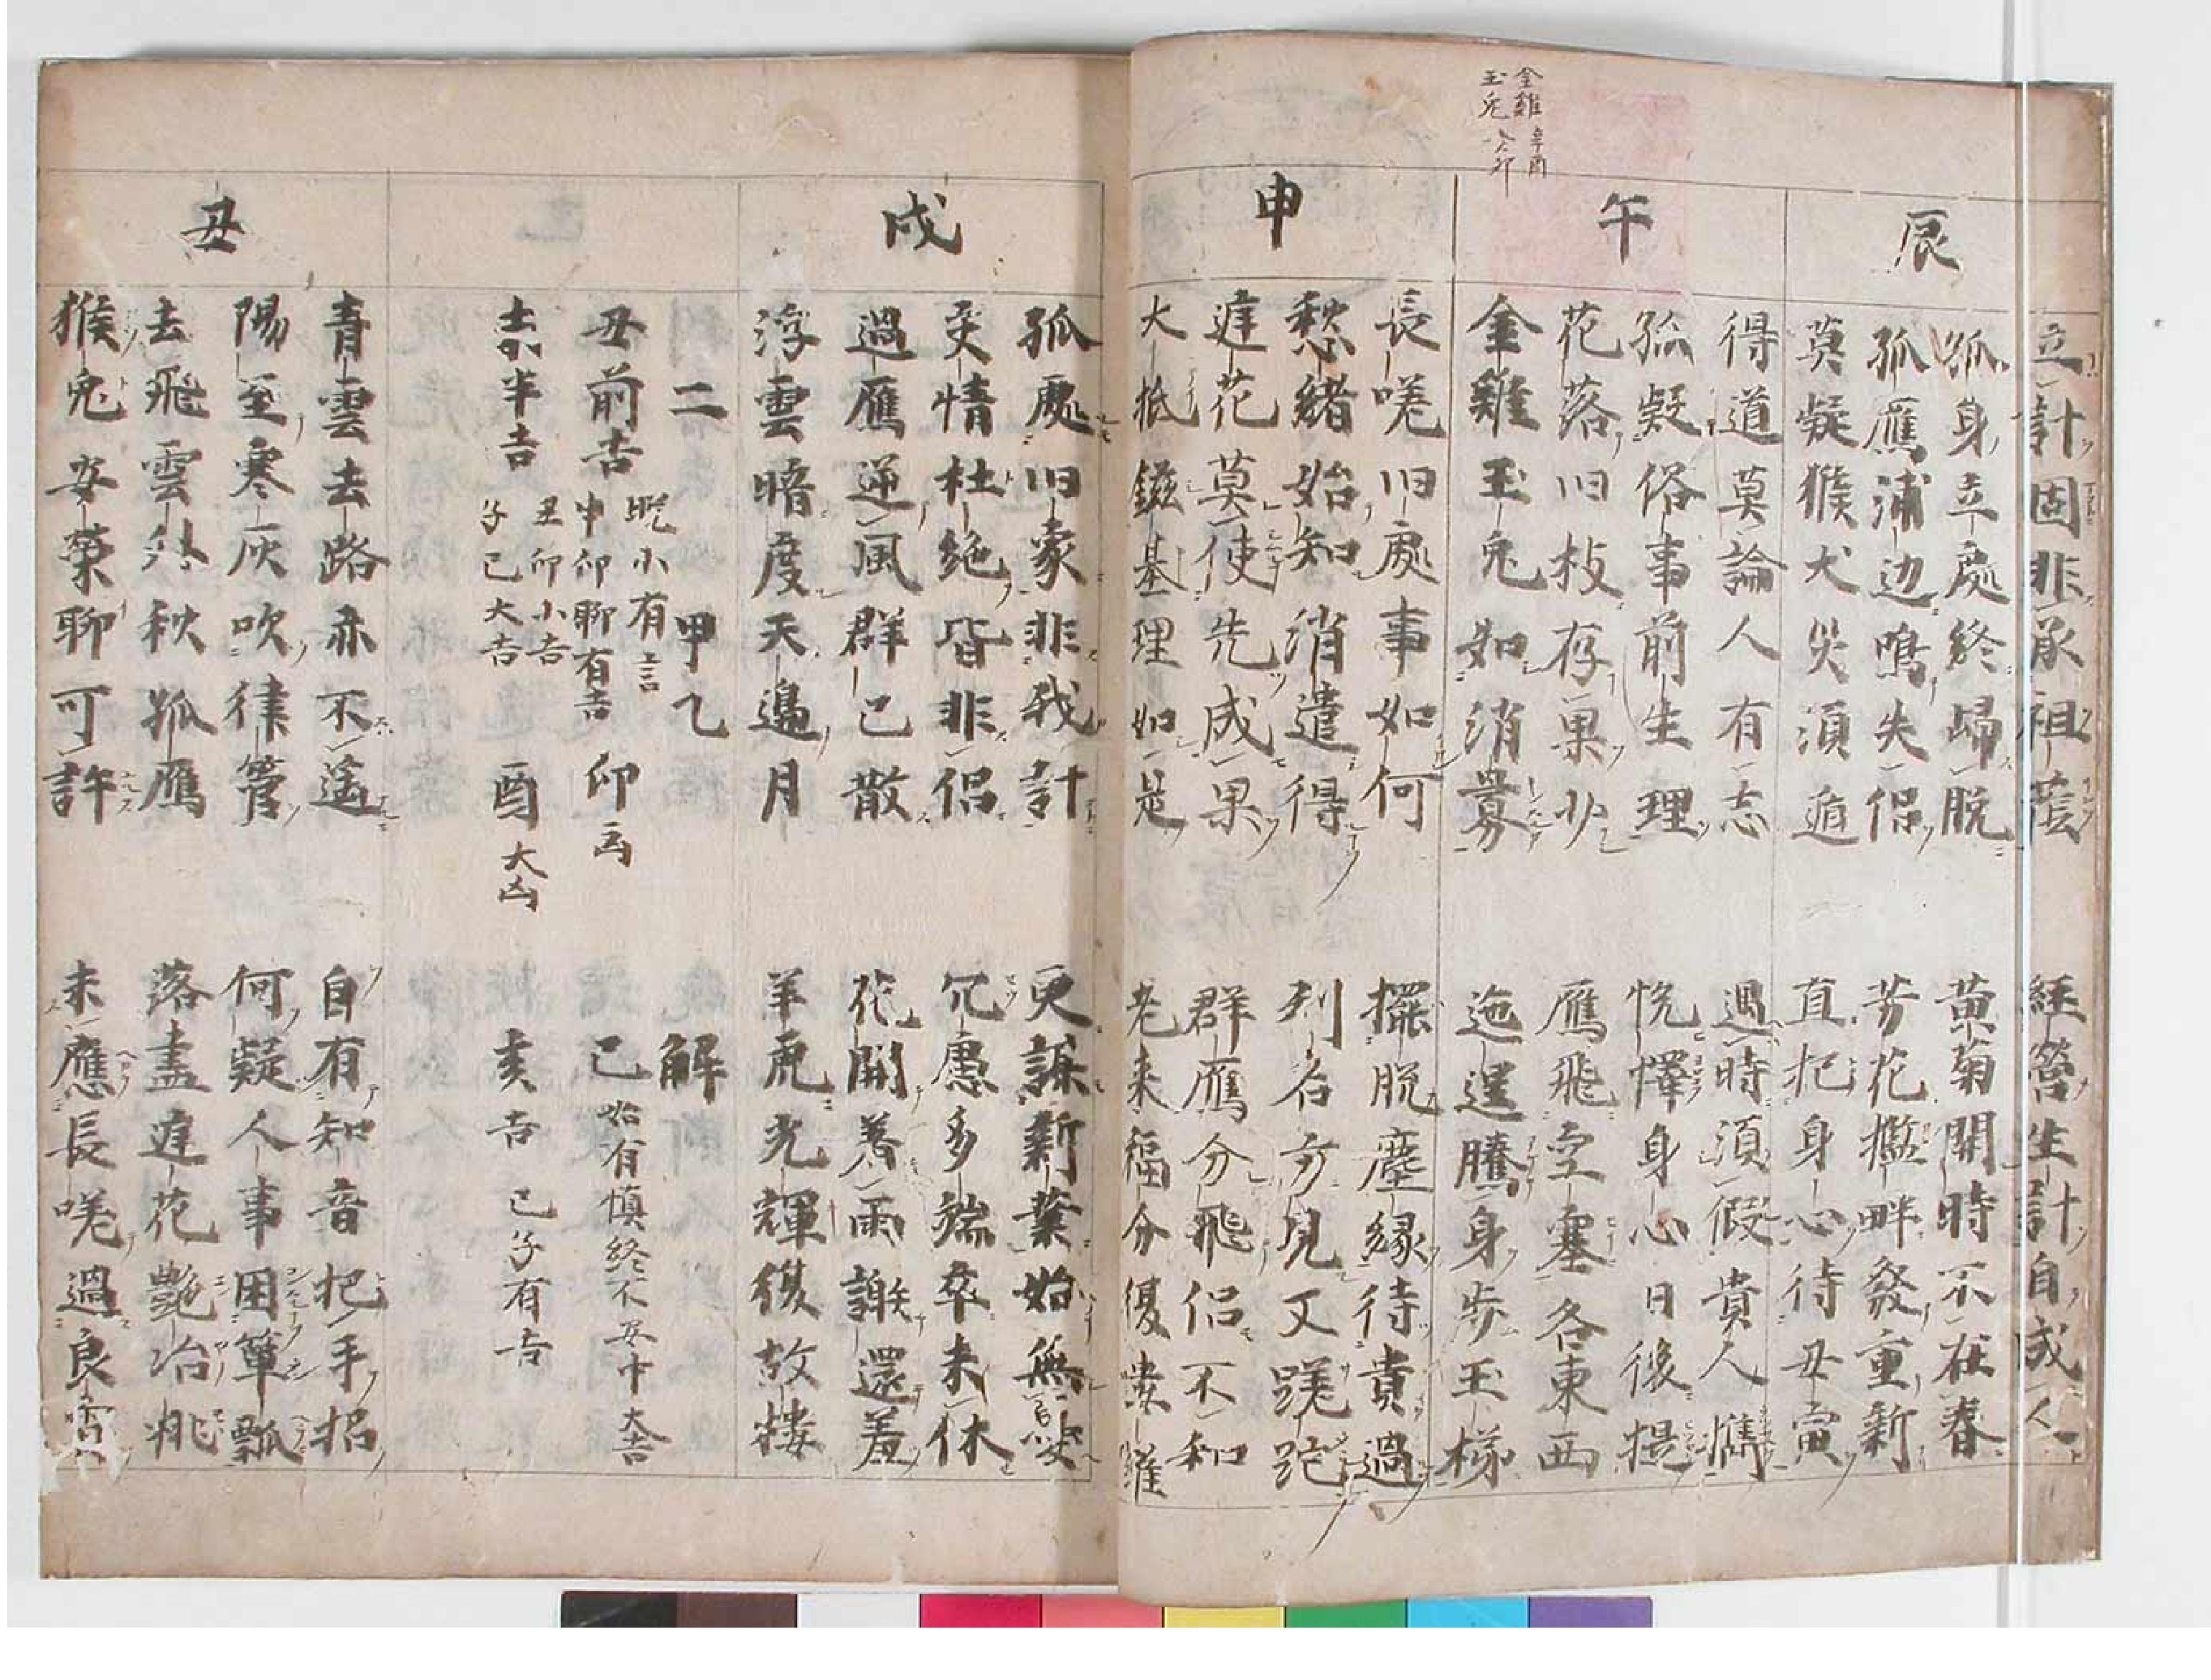 金雞 辛酉
玉兎 癸卯
立計固非承祖蔭 経營生計自成人
辰
孤身立處終歸脱 黄菊開時不在春
孤鴈浦辺鳴失侶 芳花檻畔發重新
莫疑猴犬災須遁 直把身心待丑寅
午
得道莫論人有志 過時須假貴人携
孤疑俗事前生理 悦懌身心日後提
花落旧枝存菓少 鴈飛空塞各東西
金雞玉兎如消易 迤邐騰身歩玉梯
申
長嗟旧處事如何 擺脱塵縁待貴過
愁緒始知消遣得 利名方見又蹉跎
庭花莫使先成果 群鴈分飛侶不和
大抵鎡基理如是 老来福分復婁羅
戌
孤處旧家非我計 更謀新業始無
交情杜絶皆非侶 冗慮多端卒未休
過鴈逆風群已散 花開養雨謝還羞
浮雲暗度天邉月 羊虎光輝復故樓
二 甲乙 解
丑前吉 晩小有言 申卯聊有吉 卯 凶 巳 始有慎終不安中大吉
未半吉 丑卯小吉 子巳大吉 酉 大凶 亥吉 巳子有吉
丑
青雲去路亦不遥 自有知音把手招
陽至寒灰吹律管 何疑人事困簞瓢
去飛雲外秋孤鴈 落盡庭花艶冶桃
猴兎安榮聊可許 未應長嗟過良宵